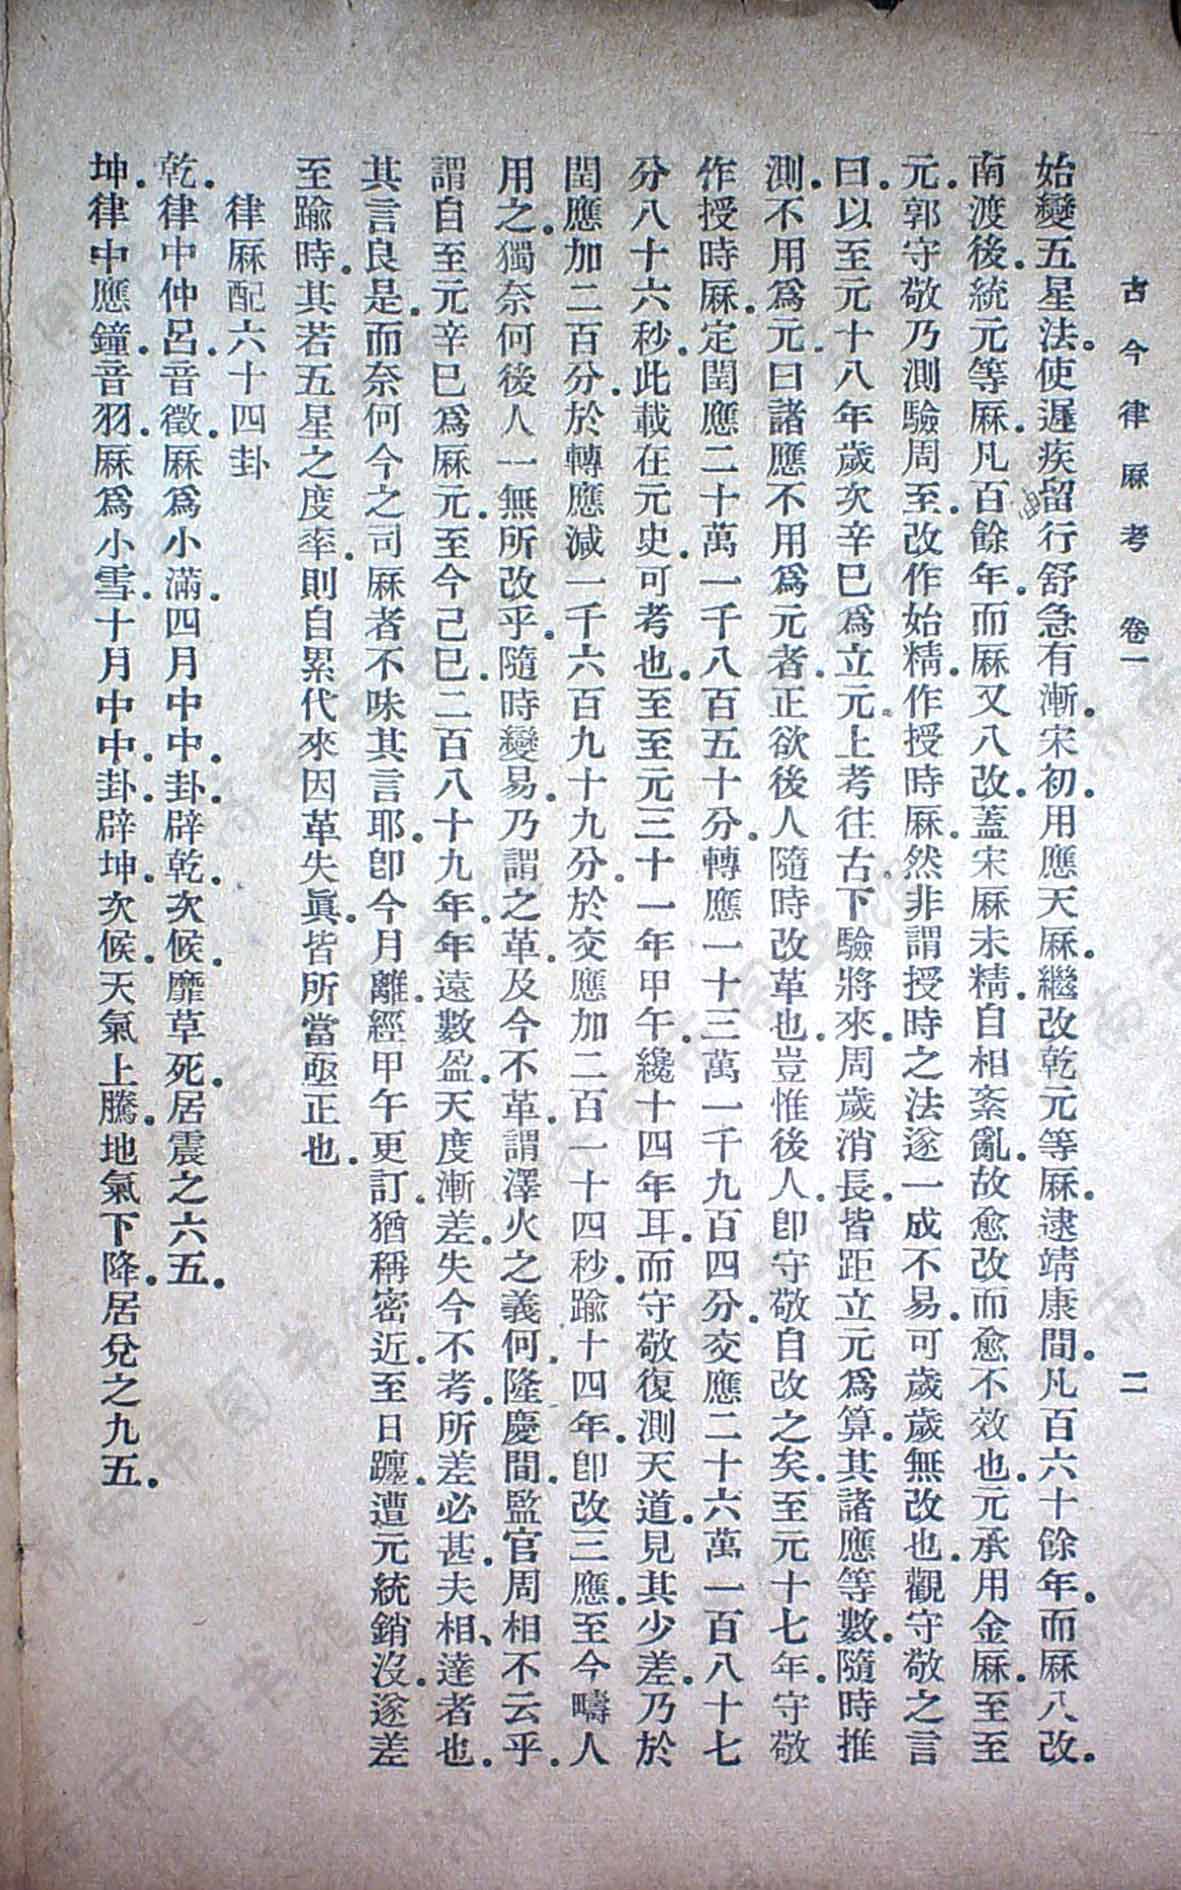 古今律厤考 卷一 二
始變五星法。使遲疾留行舒急有漸。宋初。用應天厤。繼改乾元等厤。逮靖康間。凡百六十餘年。而厤八改。
南渡後。統元等厤。凡百餘年。而厤又八改。蓋宋厤未精。自相紊亂。故愈改而愈不效也。元承用金厤。至至
元。郭守敬乃測驗周至。改作始精。作授時厤。然非謂授時之法遂一成不易。可歲歲無改也。觀守敬之言
曰。以至元十八年歲次辛巳爲立元。上考往古。下驗將來。周歲消長。皆距立元爲算。其諸應等數。隨時推
測。不用爲元。曰諸應不用爲元者。正欲後人隨時改革也。豈惟後人。卽守敬自改之矣。至元十七年。守敬
作授時厤。定閏應二十萬一千八百五十分。轉應一十三萬一千九百四分。交應二十六萬一百八十七
分八十六秒。此載在元史。可考也。至至元三十一年甲午。纔十四年耳。而守敬復測天道。見其少差。乃於
閏應加二百分。於轉應減一千六百九十九分。於交應加二百一十四秒。踰十四年。卽改三應。至今疇人
用之。獨奈何後人一無所改乎。隨時變易。乃謂之革。及今不革。謂澤火之義何。隆慶間。監官周相不云乎。
謂自至元辛巳爲厤元。至今己巳。二百八十九年。年遠數盈。天度漸差。失今不考。所差必甚。夫相、達者也。
其言良是。而奈何今之司厤者不味其言耶。卽今月離。經甲午更訂。猶稱密近。至日躔。遭元統銷沒。遂差
至踰時。其若五星之度率。則自累代來因革失眞。皆所當亟正也。
律厤配六十四卦
乾。律中仲呂。音徵。厤爲小滿。四月中中。卦辟乾。次候。靡草死。居震之六五。
坤。律中應鐘。音羽。厤爲小雪。十月中中。卦辟坤。次候。天氣上騰。地氣下降。居兌之九五。